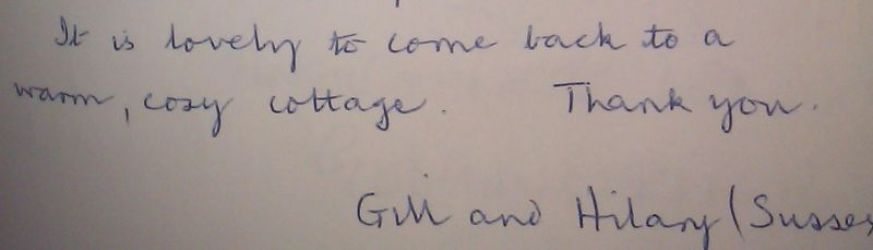 It is lovely to come back to a
warm, cosy cottage. Thank you.
Gill and Hilary (Sussex